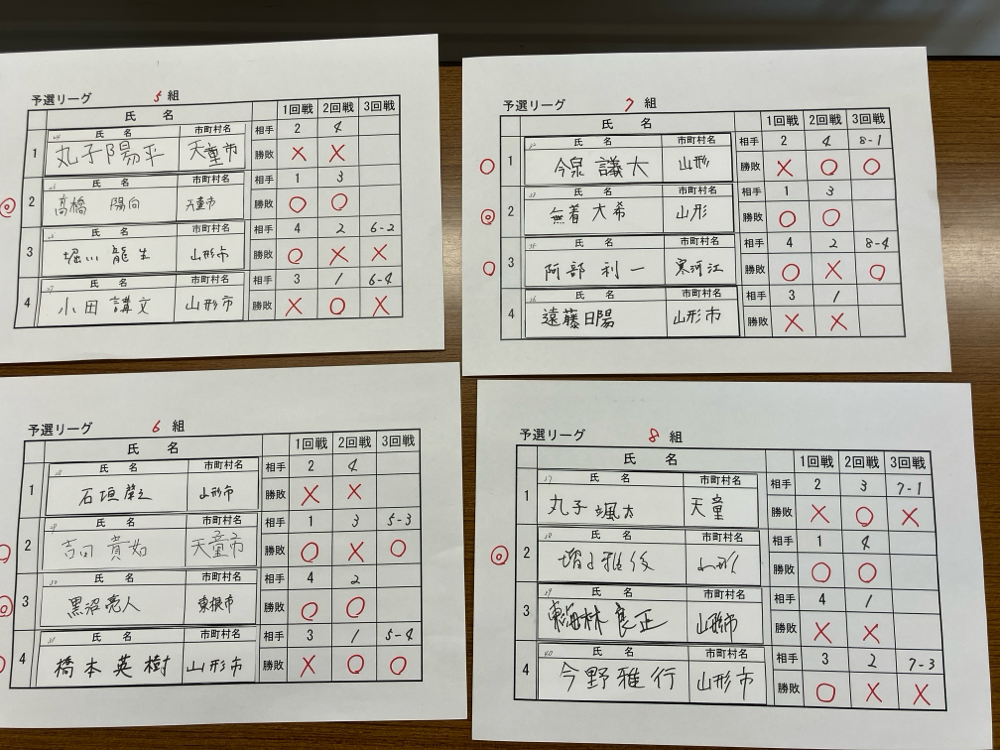 予選リーグ 5 組
氏 名 1回戦 2回戦 3回戦
1 氏 名 市町村名 相手 2 4
丸子陽平 天童市 勝敗 × ×
2 氏 名 市町村名 相手 1 3
高橋 陽向 天童市 勝敗 ○ ○
3 氏 名 市町村名 相手 4 2 6-2
堀川 龍生 山形市 勝敗 ○ × ×
4 氏 名 市町村名 相手 3 1 6-4
小田 講文 山形市 勝敗 × ○ ×
予選リーグ 7 組
氏 名 1回戦 2回戦 3回戦
1 氏 名 市町村名 相手 2 4 8-1
今泉 議大 山形 勝敗 × ○ ○
2 氏 名 市町村名 相手 1 3
無着 大希 山形 勝敗 ○ ○
3 氏 名 市町村名 相手 4 2 8-4
阿部 利一 寒河江 勝敗 ○ × ○
4 氏 名 市町村名 相手 3 1
遠藤日陽 山形市 勝敗 × ×
予選リーグ 6 組
氏 名 1回戦 2回戦 3回戦
1 氏 名 市町村名 相手 2 4
石垣 山形市 勝敗 × ×
2 氏 名 市町村名 相手 1 3 5-3
吉田 貴如 天童市 勝敗 ○ × ○
3 氏 名 市町村名 相手 4 2
黒沼亮人 東根市 勝敗 ○ ○
4 氏 名 市町村名 相手 3 1 5-4
橋本英樹 山形市 勝敗 × ○ ○
予選リーグ 8 組
氏 名 1回戦 2回戦 3回戦
1 氏 名 市町村名 相手 2 3 7-1
丸子 颯太 天童 勝敗 × ○ ×
2 氏 名 市町村名 相手 1 4
山形 勝敗 ○ ○
3 氏 名 市町村名 相手 4 1
東海林 良正 山形市 勝敗 × ×
4 氏 名 市町村名 相手 3 2 7-3
今野雅行 山形市 勝敗 ○ × ×